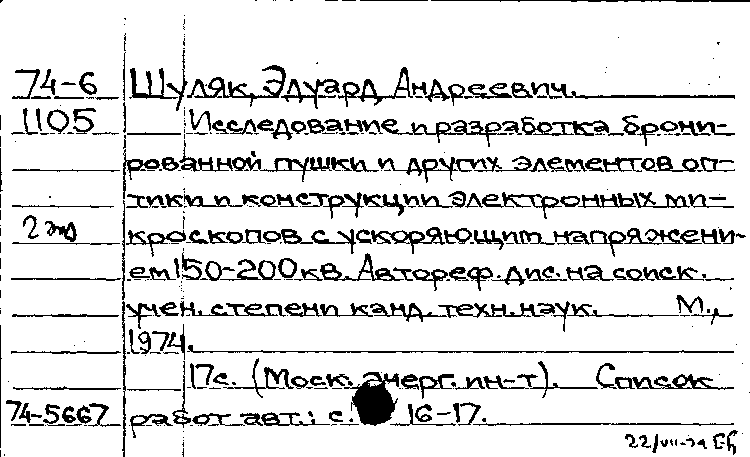 74-6 Шуляк, Эдуард Андреевич.
1105 Исследование и разработка брони-
рованной пушки и других элементов оп-
тики и конструкции электронных ми-
2 экз кроскопов с ускоряющим напряжени-
ем 150-200 кв. Автореф. дис. на соиск.
учен. степени канд. техн. наук. М.,
1974.
17с. (Моск. энерг. ин-т). Список
74-5667 работ авт.: с. 16-17.
22/VII-74